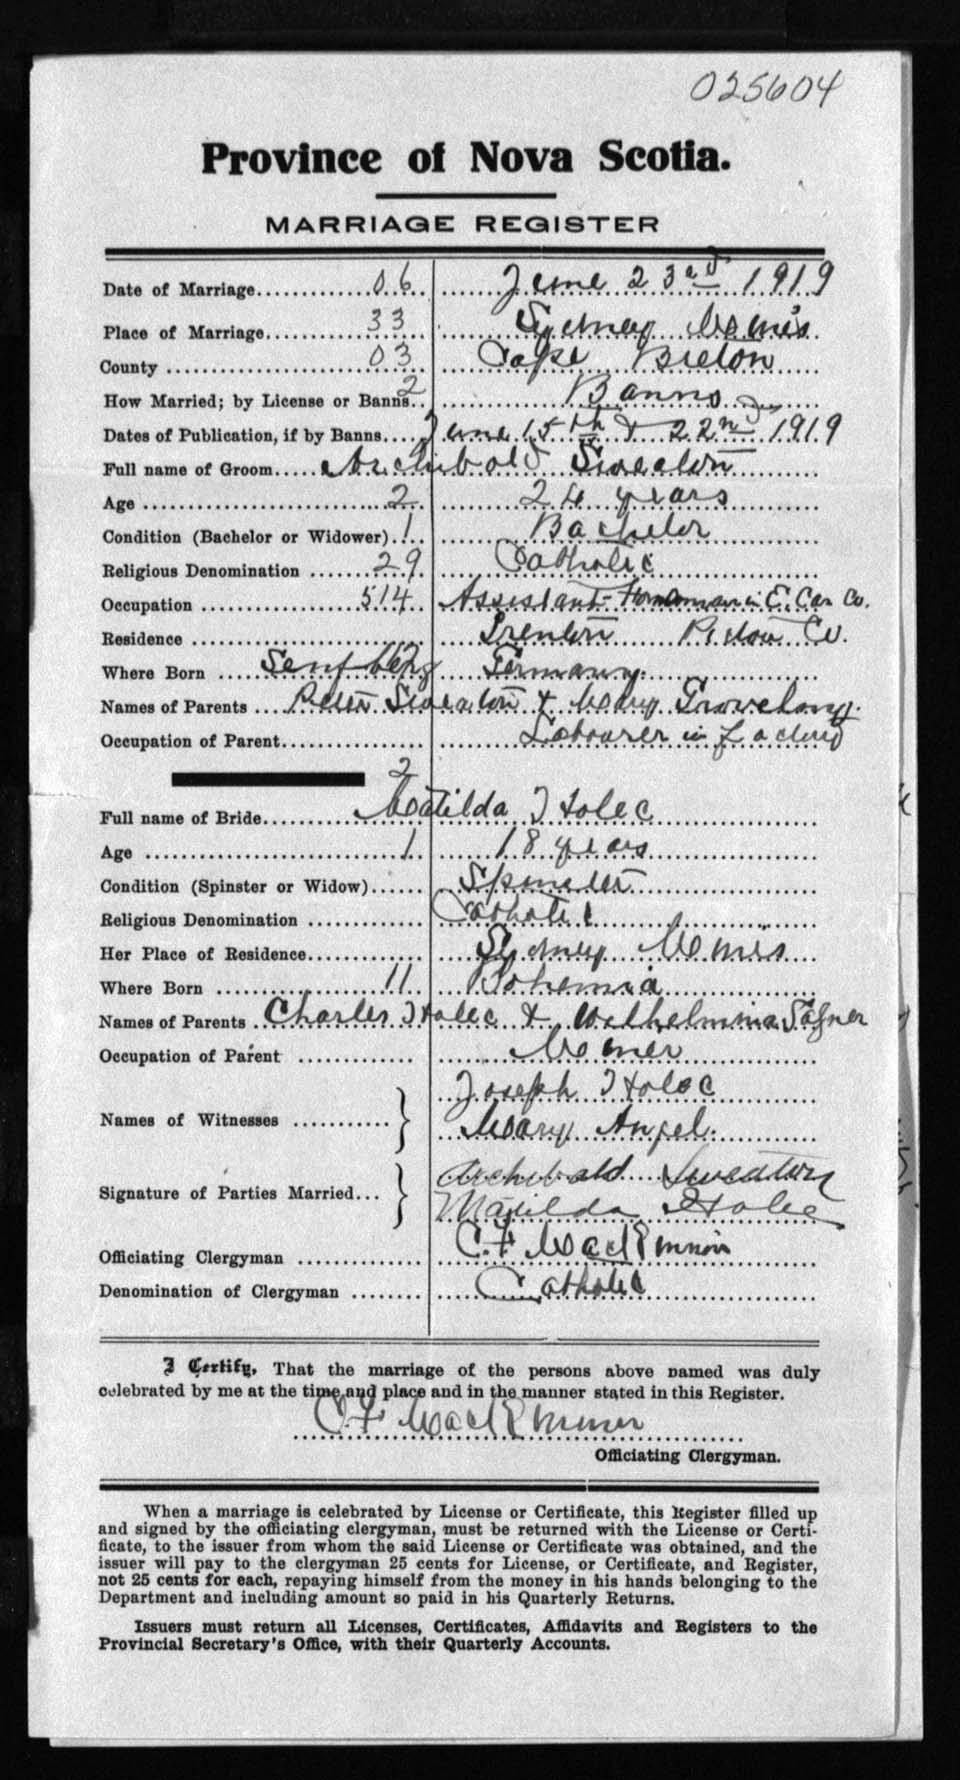 025604
Province of Nova Scotia.
MARRIAGE REGISTER
Date of Marriage 06 June 23rd 1919
Place of Marriage 33 Sydney Mines
County 03 Cape Breton
How Married; by License or Banns 2 Banns
Dates of Publication, if by Banns June 15th & 22nd 1919
Full name of Groom Archibald Sweaton
Age 2 24 years
Condition (Bachelor or Widower) 1 Bachelor
Religious Denomination 29 Catholic
Occupation 514 Assistant in E. Car Co.
Residence Trenton Pictou Co.
Where Born Germany
Names of Parents Peter Sweaton & Mary
Occupation of Parent Labourer in
2
Full name of Bride Matilda Holec
Age 1 18 years
Condition (Spinster or Widow) Spinster
Religious Denomination Catholic
Her Place of Residence Sydney Mines
Where Born 11 Bohemia
Names of Parents Charles Holec & Wilhelmina
Occupation of Parent Miner
Joseph Holec
Names of Witnesses
Mary Angel
Archibald Sweaton
Signature of Parties Married
Matilda Holec
Officiating Clergyman C. F. MacKinnon
Denomination of Clergyman Catholic
I Certify, That the marriage of the persons above named was duly
celebrated by me at the time and place and in the manner stated in this Register.
C. F. MacKinnon
Officiating Clergyman.
When a marriage is celebrated by License or Certificate, this Register filled up
and signed by the officiating clergyman, must be returned with the License or Certi-
ficate, to the issuer from whom the said License or Certificate was obtained, and the
issuer will pay to the clergyman 25 cents for License, or Certificate, and Register,
not 25 cents for each, repaying himself from the money in his hands belonging to the
Department and including amount so paid in his Quarterly Returns.
Issuers must return all Licenses, Certificates, Affidavits and Registers to the
Provincial Secretary's Office, with their Quarterly Accounts.